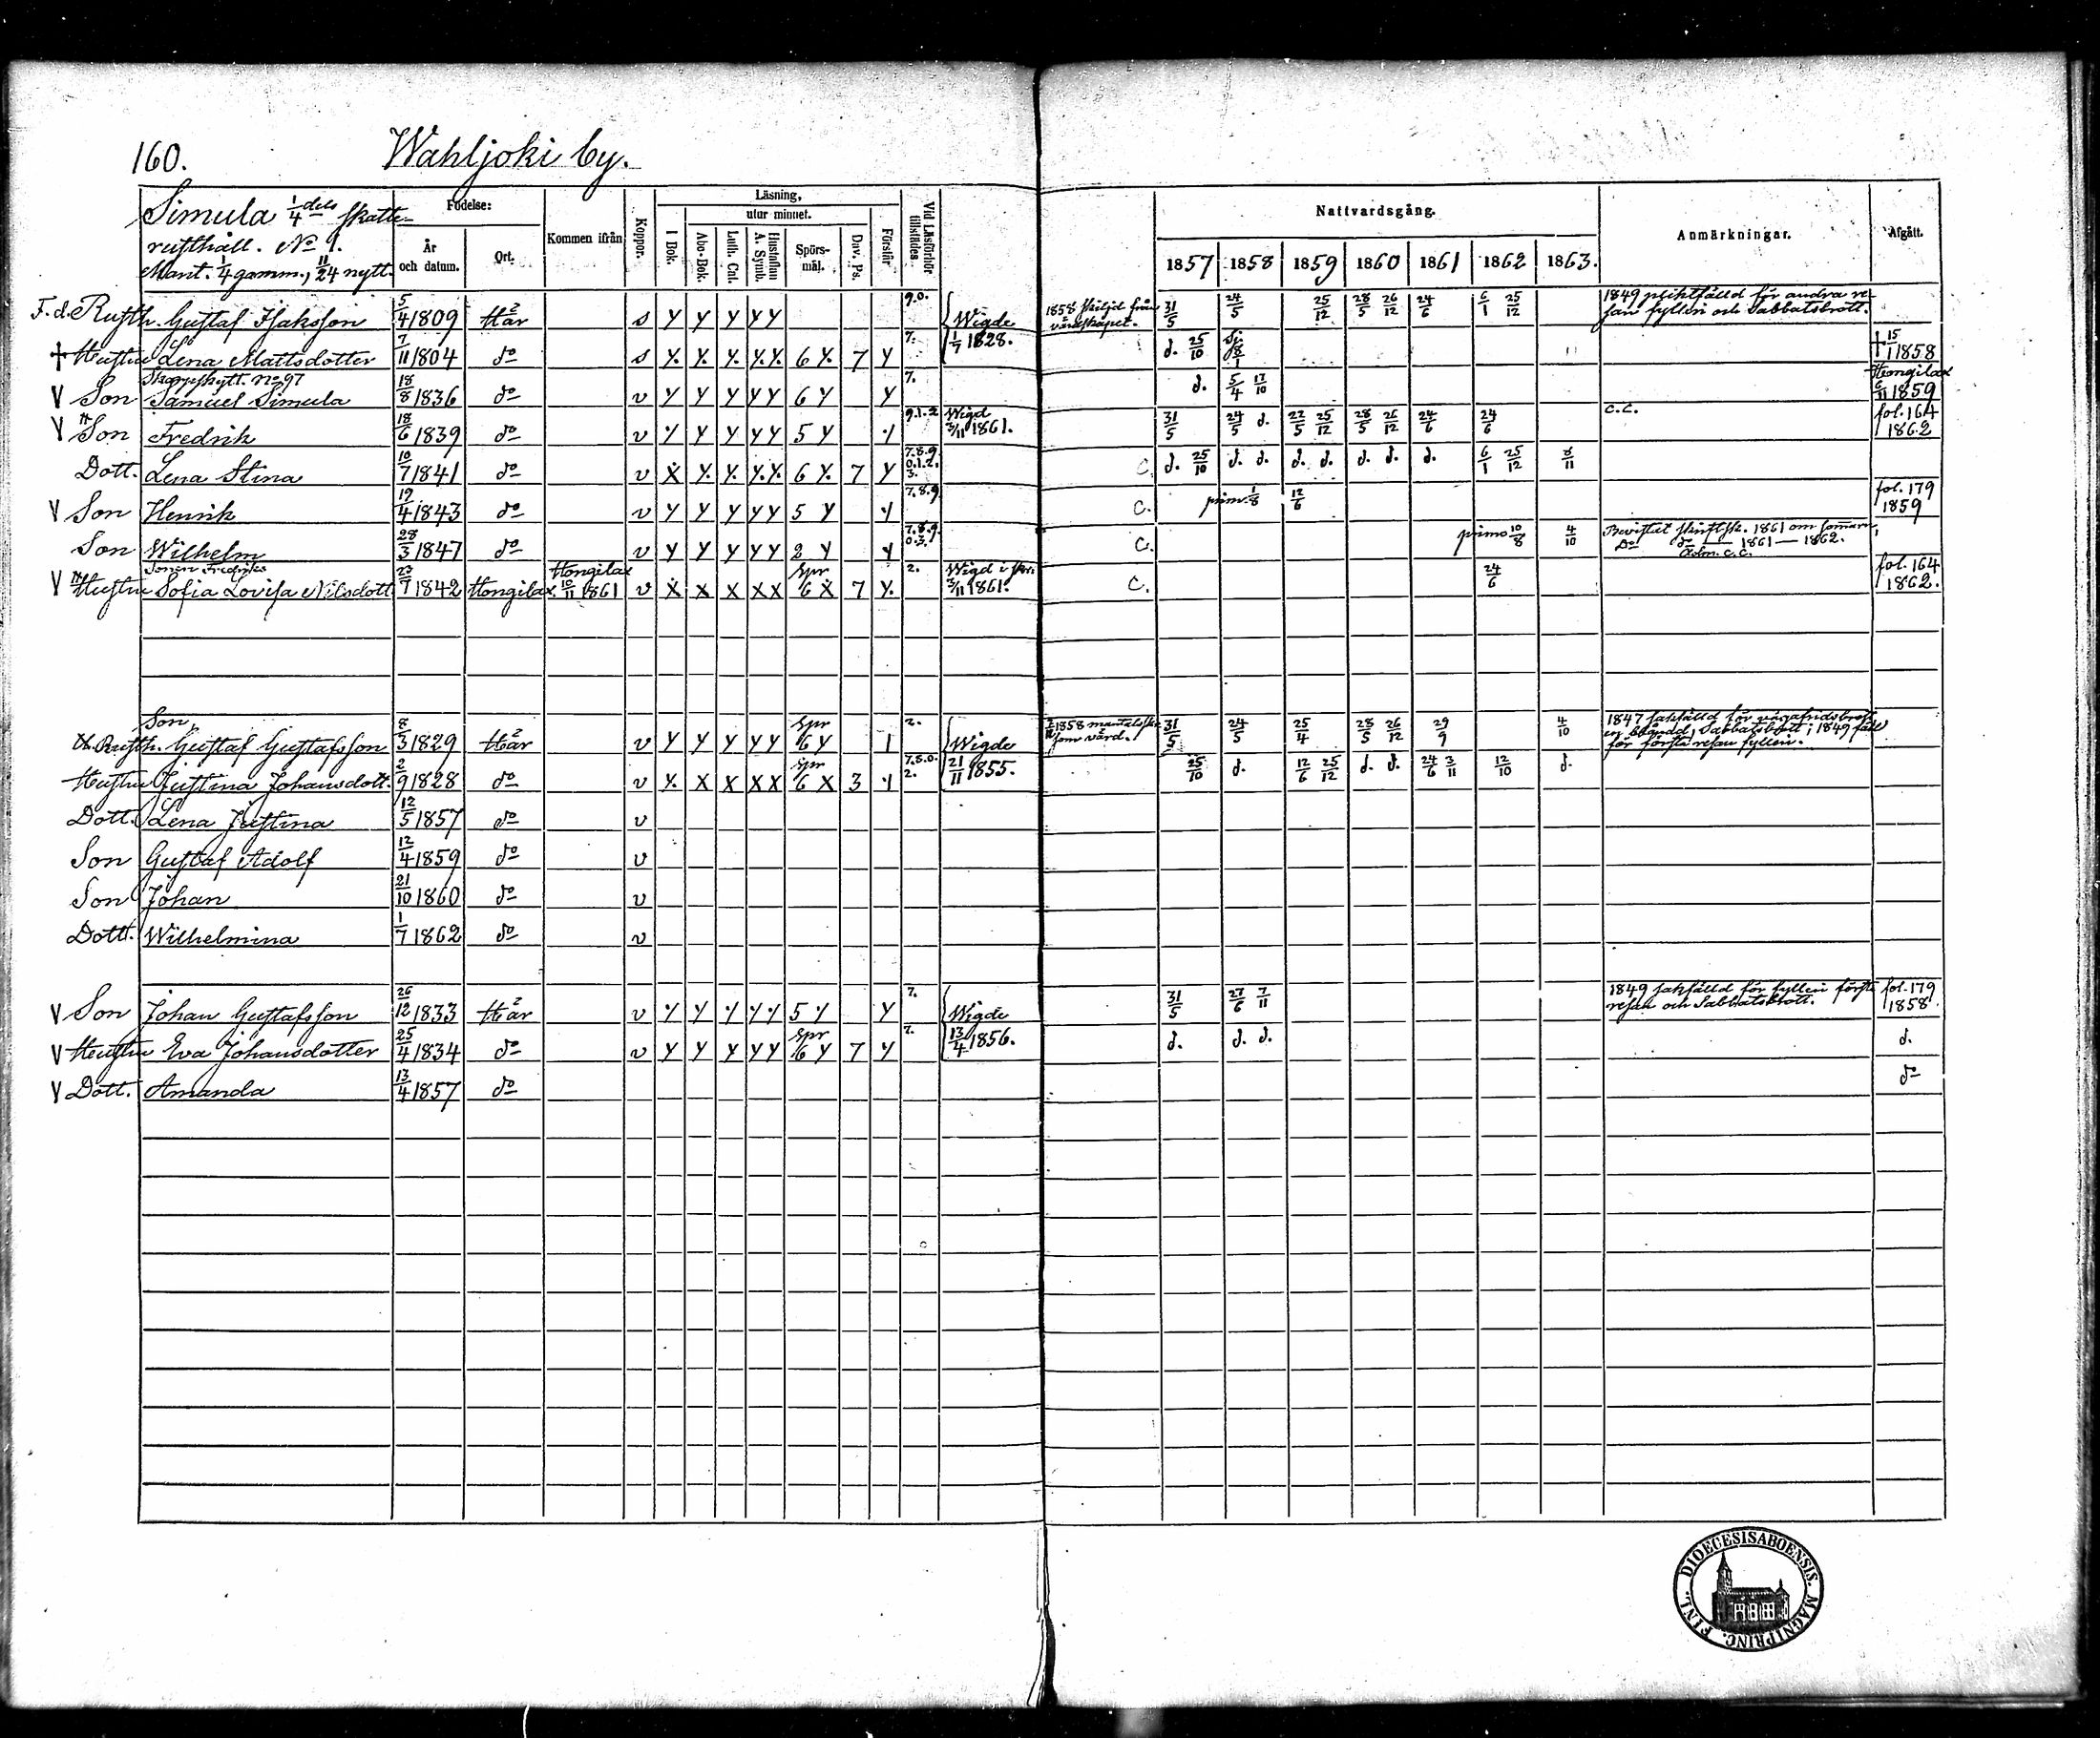 160. Wahljoki by.
Simula 1/4 dels skatte-
rusthåll. No 9.
Mant. 1/4 gamm., 11/24 nytt.
Födelse:
År och datum.
Ort.
Kommen ifrån
Koppor.
Läsning,
I Bok.
utur minnet.
Abc-Bok.
Luth. Cat.
Hustaflan A. Symb.
Spörs-mål.
Dav. Ps.
Förstår
Vid Läsförhör tillstädes
Nattvardsgång.
1857 1858 1859 1860 1861 1862 1863.
Anmärkningar.
Afgått.
F. d. Rusth. Gustaf Isaksson 5/4 1809 Här s y y y y y 9.0. Wigde 1858 skiljd från värdskapet. 31/5 24/5 25/12 28/5 26/12 24/6 6/1 25/12 1849 pliktfälld för andra re-
san fylleri och Sabbatsbrott.
† Hustru Lena Mattsdotter 7/11 1804 do s y. y. y. y. y. 6 y. 7 y 7. 1/7 1828. d. 25/10 † 15/1 1858
Skarpskytt. No 97
V Son Samuel Simula 18/8 1836 do v y y y y y 6 y y 7. d. 5/4 17/10 Hongilax 6/11 1859
V Son Fredrik 18/6 1839 do v y y y y y 5 y y 9.1.2 Wigd 3/11 1861. 31/5 24/5 d. 22/5 25/12 28/5 26/12 24/6 24/6 c.c. fol. 164 1862
Dott. Lena Stina 10/7 1841 do v x y. y. y. y. 6 y. 7 y 7.8.9. 0.1.2. 3. C. d. 25/10 d. d. d. d. d. d. d. 6/1 25/12 8/11
V Son Henrik 19/4 1843 do v y y y y y 5 y y 7.8.9 C. prim. 1/8 12/6 fol. 179 1859
Son Wilhelm 28/3 1847 do v y y y y y 2 y y 7.8.9. 0.3. C. primo 10/8 4/10 Bevistat skriftsk. 1861 om somaren,
Do do 1861 — 1862.
Sonen Fredriks
V Hustru Sofia Lovisa Nilsdott. 23/7 1842 Hongilax. Hongilax 10/11 1861 v x x x x x Spr 6 x 7 y. 2. Wigd 3/11 1861. C. 24/6 fol. 164 1862.
Son,
Rusth. Gustaf Gustafsson 8/3 1829 Här v y y y y y Spr 6 y 1 2. Wigde 1858 som värd. 31/5 24/5 25/4 28/5 26/12 29/9 4/10 1847 sakfälld för
Sabbatsbrott; 1849 fäld
för första resan fylleri.
Hustru Justina Johansdott. 2/9 1828 do v y. x x x x Spr 6 x 3 y 7.8.0. 2. 21/11 1855. 25/10 d. 12/6 25/12 d. d. 24/6 3/11 12/10 d.
Dott. Lena Justina 12/5 1857 do v
Son Gustaf Adolf 12/4 1859 do v
Son Johan 21/10 1860 do v
Dott. Wilhelmina 1/7 1862 do v
V Son Johan Gustafsson 26/12 1833 Här v y y y y y 5 y y 7. Wigde 31/5 27/6 7/11 1849 sakfälld för fylleri första
resan och Sabbatsbrott. fol. 179 1858.
V Hustru Eva Johansdotter 25/4 1834 do v y y y y y Spr 6 y 7 y 7. 13/4 1856. d. d. d. d.
V Dott. Amanda 13/4 1857 do do
DIOECESIS ABOENSIS. MAGNI PRINC. FINL.